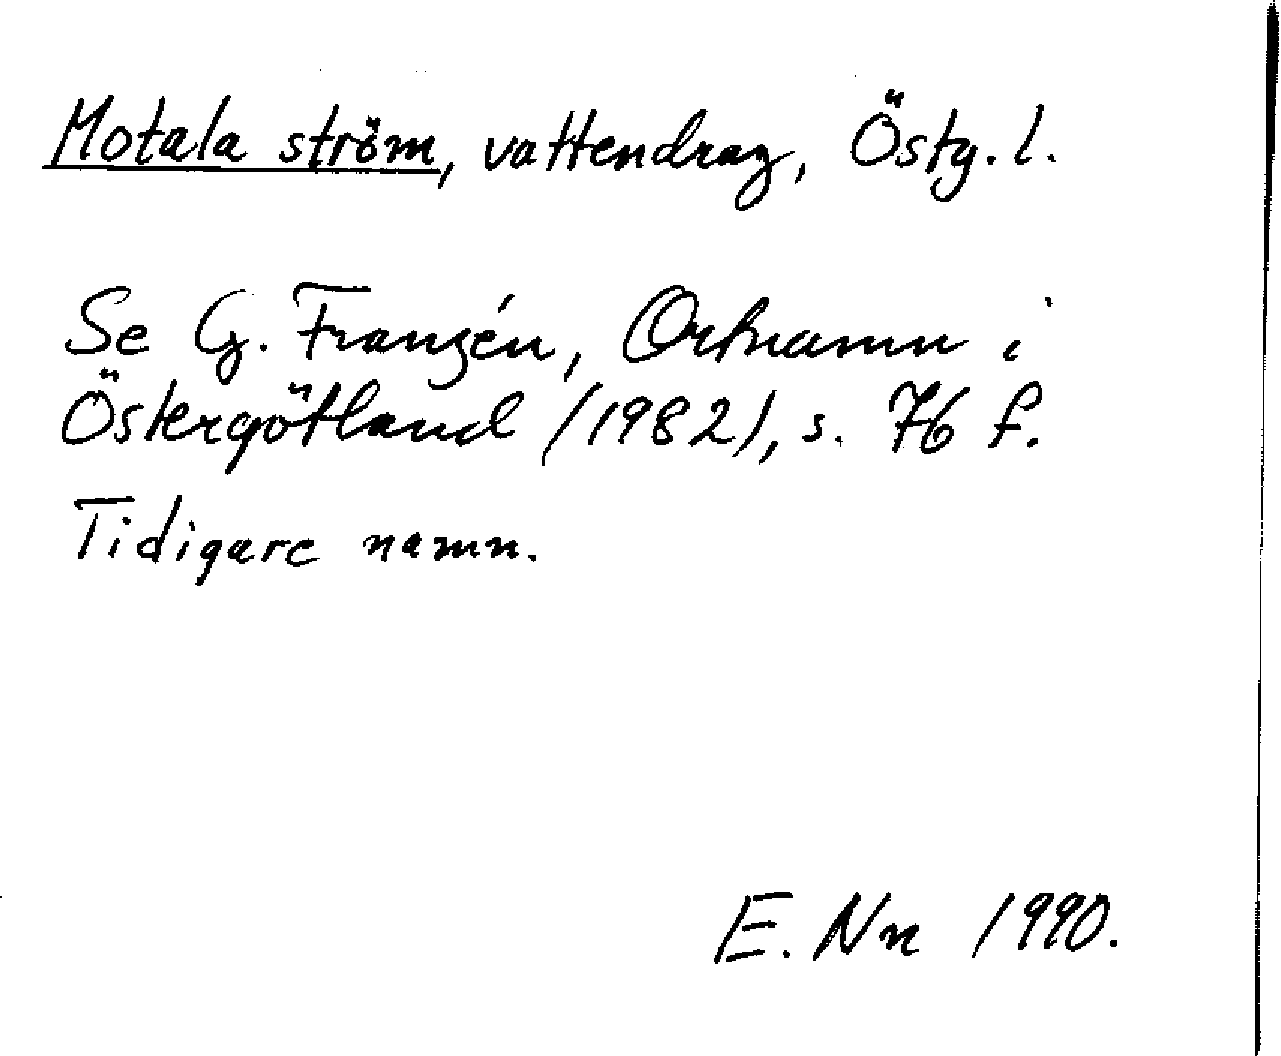 Motala ström, vattendrag, Östg. l.
Se G. Franzén, Ortnamn i
Östergötland (1982), s. 76 f.
Tidigare namn.
E. Nn 1990.